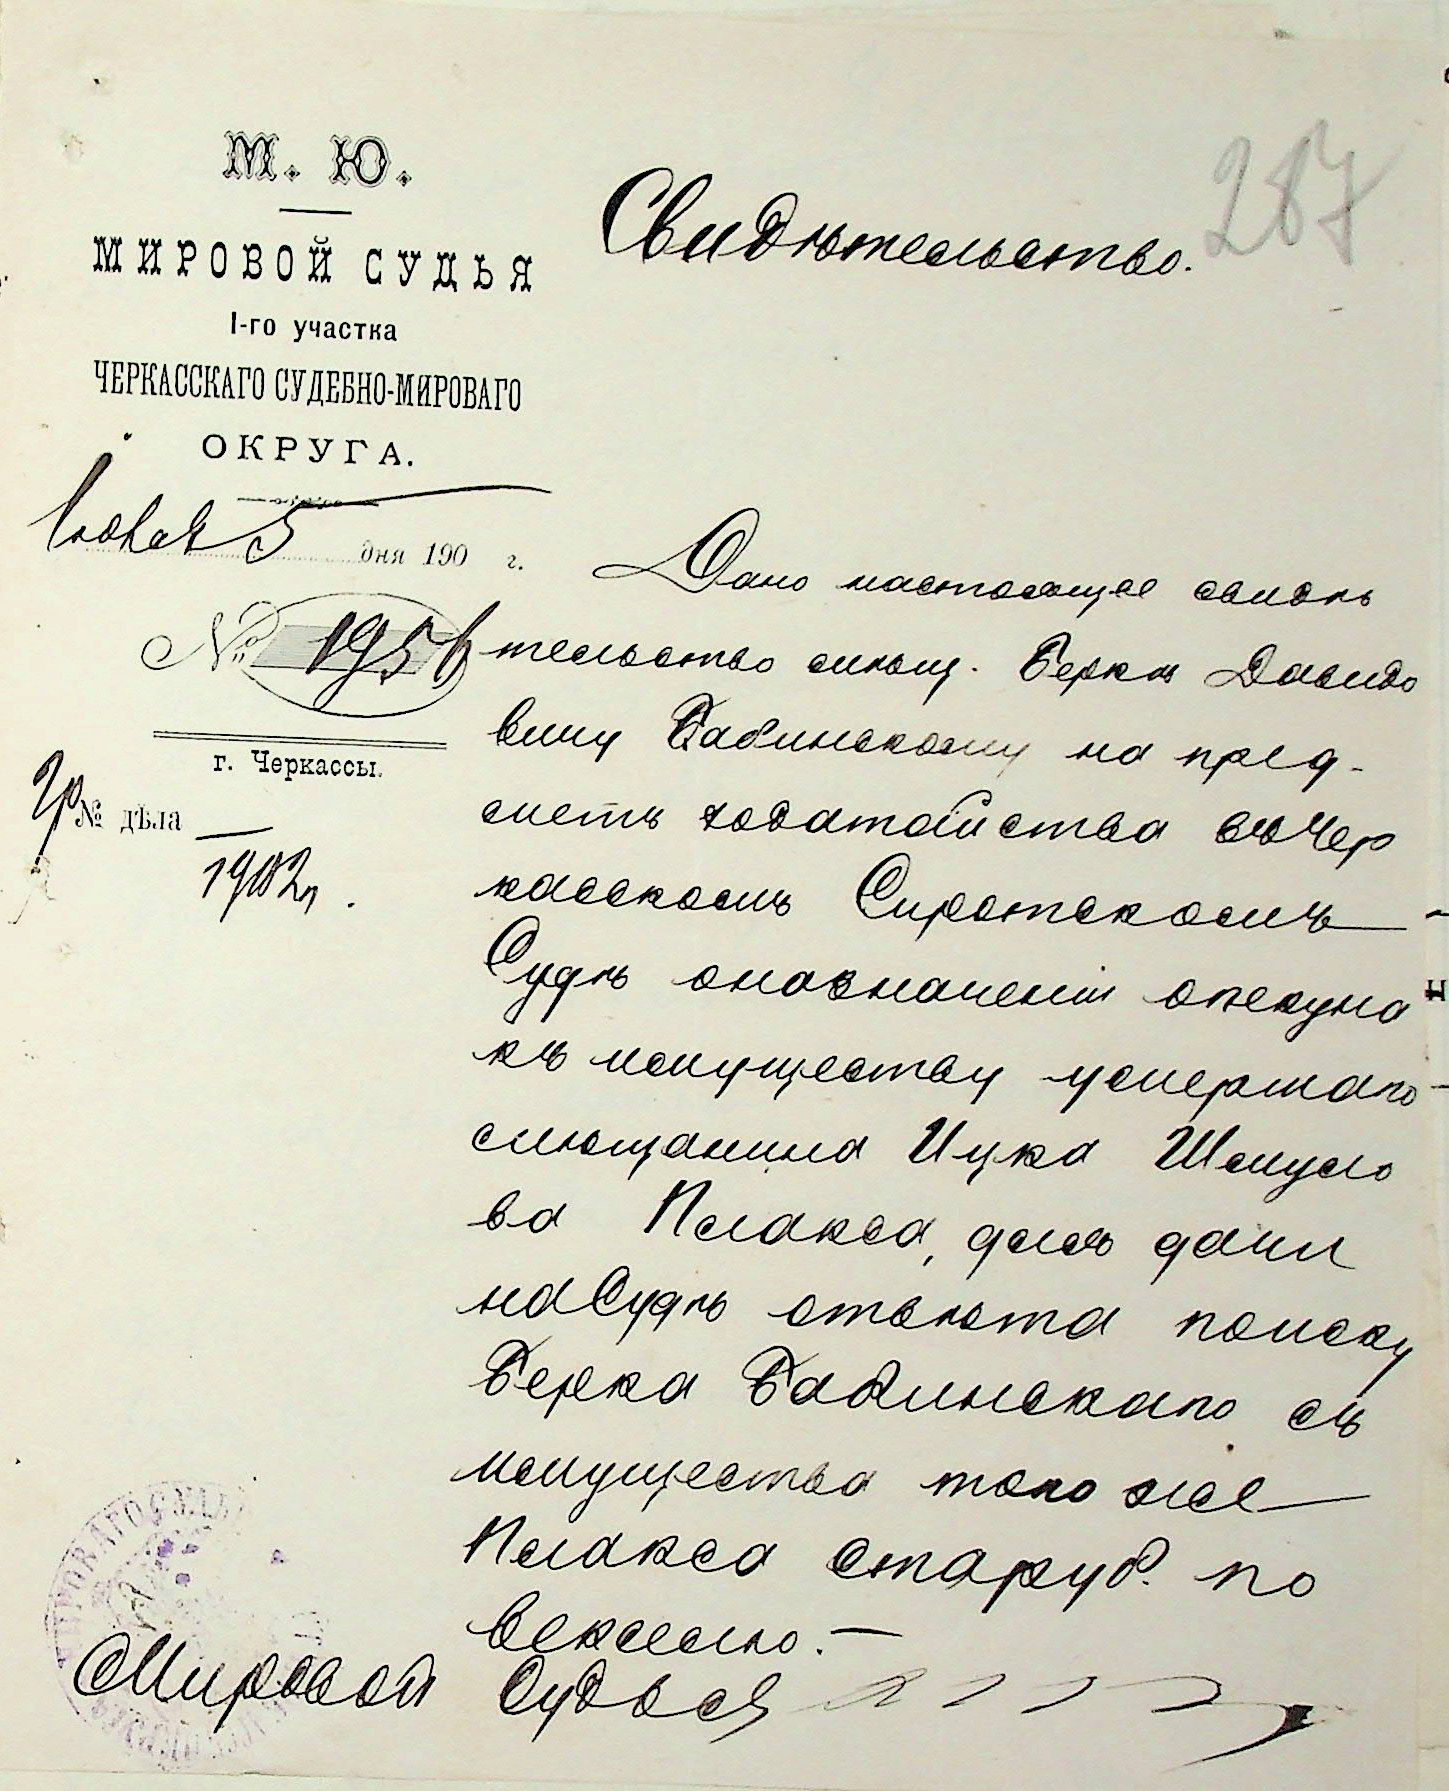 287
М. Ю.
МИРОВОЙ СУДЬЯ
1-го участка
ЧЕРКАССКАГО СУДЕБНО-МИРОВАГО
ОКРУГА.
5 дня 190 г.
№ 1951
г. Черкассы.
гр № дѣла
1902 г.
Свидѣтельство.
Дано настоящее свидѣ
тельство мѣщ. Берку Давидо
вичу Бабинскому на пред-
метъ ходатайства въ Чер
касскомъ Сиротскомъ
Судѣ о назначеніи опекуна
къ имуществу умершаго
мѣщанина Ицка Шмуло
ва Плакса, для дачи
на Судѣ отвѣта по иску
Берка Бабинскаго съ
имущества того же
Плакса сто руб. по
векселю.—
Мировой Судья